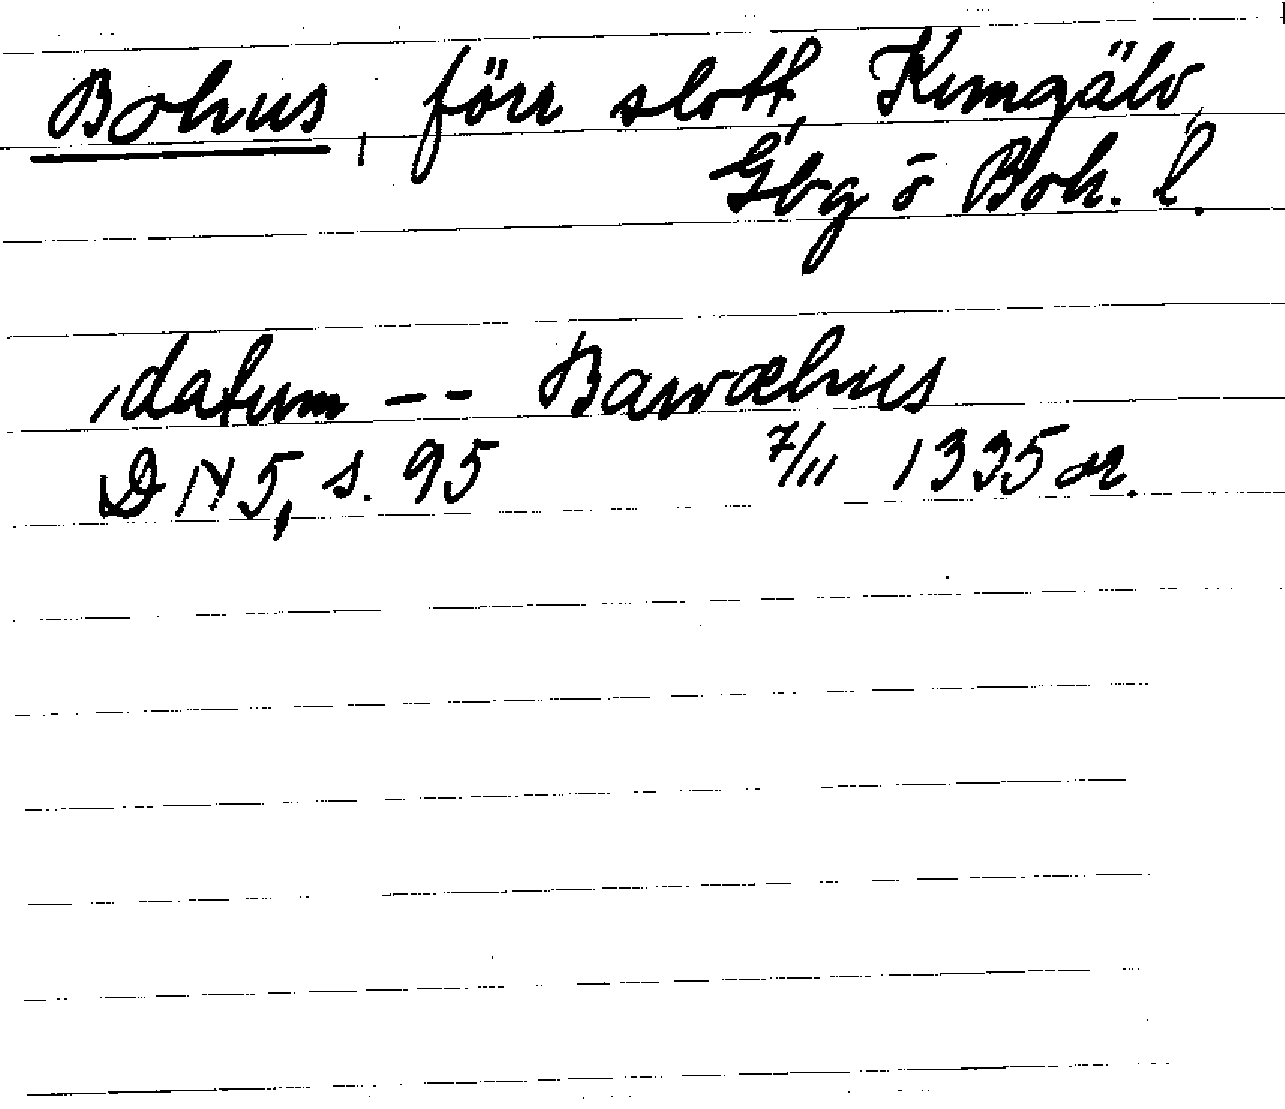 Bohus, förr slott, Kungälv,
Gbg o Boh. l.
datum -- Bawæhus
DN 5, s. 95 7/11 1335 or.